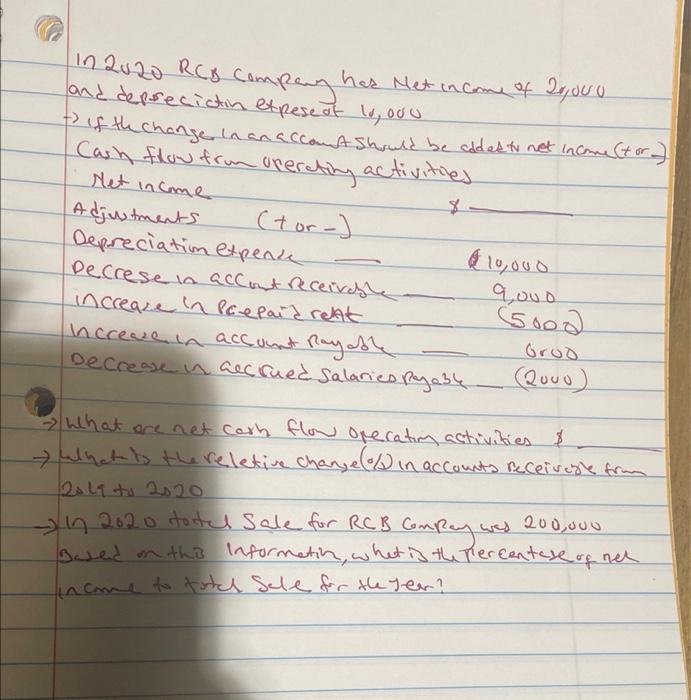 In 2020 RCB Company has Net income of 20,000
and deprecictin expese of 10,000
→ if the change in an account should be added to net income (+ or -)
Cash flow from operating activities
Net income $ ____
Adjustments (+ or -)
Depreciation expense ____ $10,000
Decrese in account receivable ____ 9,000
increase in Prepaid rent ____ (5000)
increase in account Payable ____ 6000
Decrease in accrued Salaries Payable ____ (2000)
→ What are net cash flow operating activities $ ____
→ What is the reletive change (%) in accounts receivable from
2019 to 2020
→ In 2020 totel Sale for RCB Company was 200,000
Based on this Informatin, what is the Percentage of net
income to totel Sale for the Year?